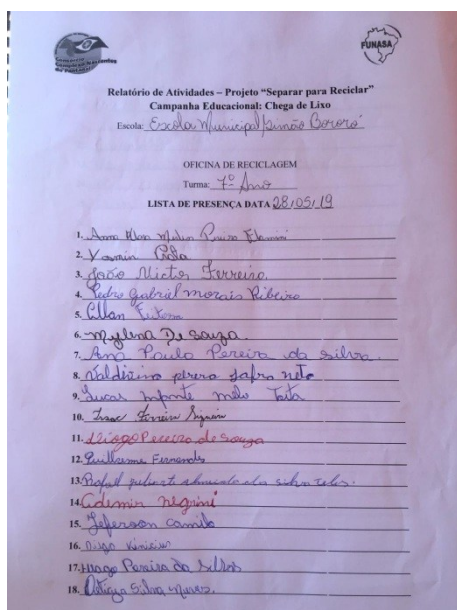 FUNASA
Relatório de Atividades – Projeto “Separar para Reciclar”
Campanha Educacional: Chega de Lixo
Escola: Escola Municipal Simão Bororó
OFICINA DE RECICLAGEM
Turma: 7º Ano
LISTA DE PRESENÇA DATA 28/05/19
1. Anna
2. Yasmin
3. João Victor Ferreira.
4. Pedro Gabriel morais Ribeiro
5.
6. Mylena De Souza.
7. Ana Paula Pereira da silva.
8. neto
9. Lucas melo
10. Isaac Ferreira
11. Diogo Pereira de Souza
12. Guilherme Fernandes
13. Rafael almeida da silva teles.
14. Ademir negrini
15. Jeferson camilo
16. Diogo Vinicius
17. Hiago Pereira da
18. Silva